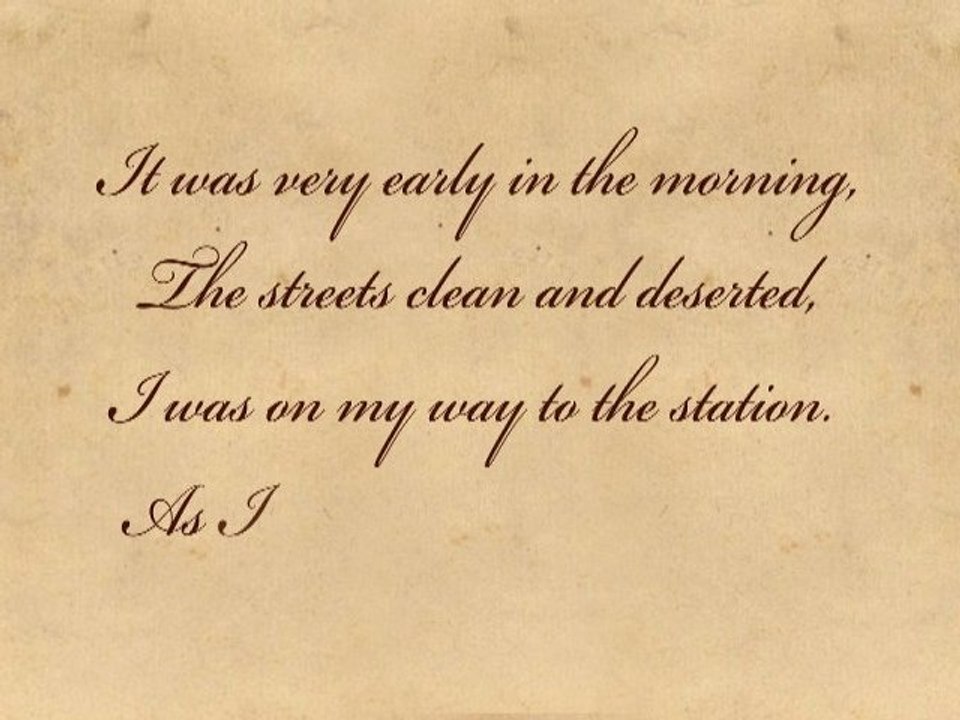 It was very early in the morning,
The streets clean and deserted,
I was on my way to the station.
As I